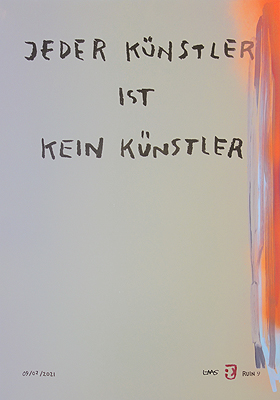 JEDER KÜNSTLER
IST
KEIN KÜNSTLER
09/07/2021
RUIN